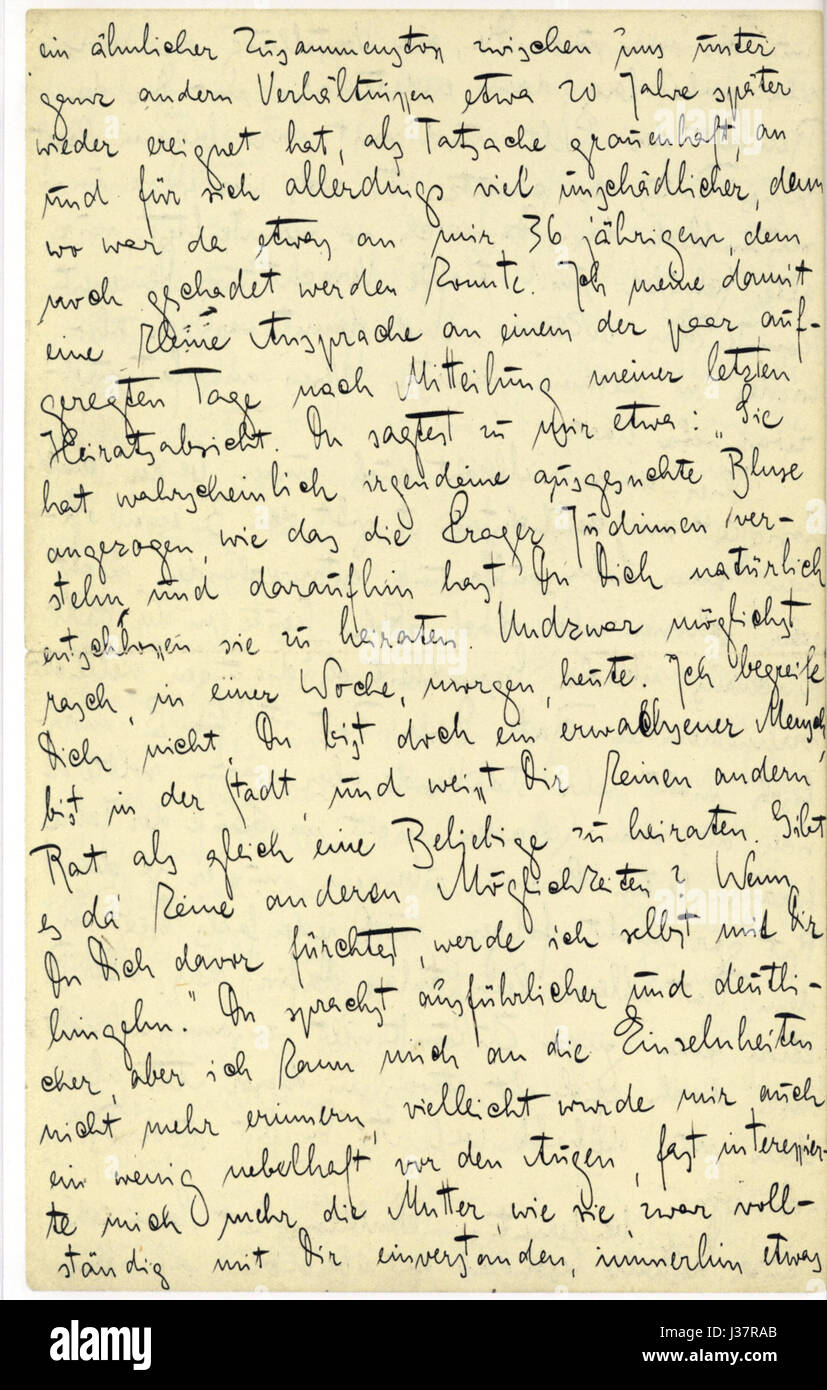 ein ähnlicher Zusammenstoß zwischen uns unter
ganz andern Verhältnissen etwa 20 Jahre später
wieder ereignet hat, als Tatsache grauenhaft, an
und für sich allerdings viel unschädlicher, denn
wo war da etwas an mir 36 jährigem, dem
noch geschadet werden konnte. Ich meine damit
eine kleine Ansprache an einem der paar auf-
geregten Tage nach Mitteilung meiner letzten
Heiratsabsicht. Du sagtest zu mir etwa: „Sie
hat wahrscheinlich irgendeine ausgesuchte Bluse
angezogen, wie das die Prager Jüdinnen ver-
stehn und daraufhin hast Du Dich natürlich
entschlossen sie zu heiraten. Undzwar möglichst
rasch, in einer Woche, morgen, heute. Ich begreife
Dich nicht, Du bist doch ein erwachsener Mensch,
bist in der Stadt, und weißt Dir keinen andern
Rat als gleich eine Beliebige zu heiraten. Gibt
es da keine anderen Möglichkeiten? Wenn
Du Dich davor fürchtest, werde ich selbst mit Dir
hingehn." Du sprachst ausführlicher und deutli-
cher, aber ich kann mich an die Einzelnheiten
nicht mehr erinnern, vielleicht wurde mir auch
ein wenig nebelhaft vor den Augen, fast interessier-
te mich mehr die Mutter, wie sie, zwar voll-
ständig mit Dir einverstanden, immerhin etwas
alamy
alamy stock photo
J37RAB
www.alamy.com